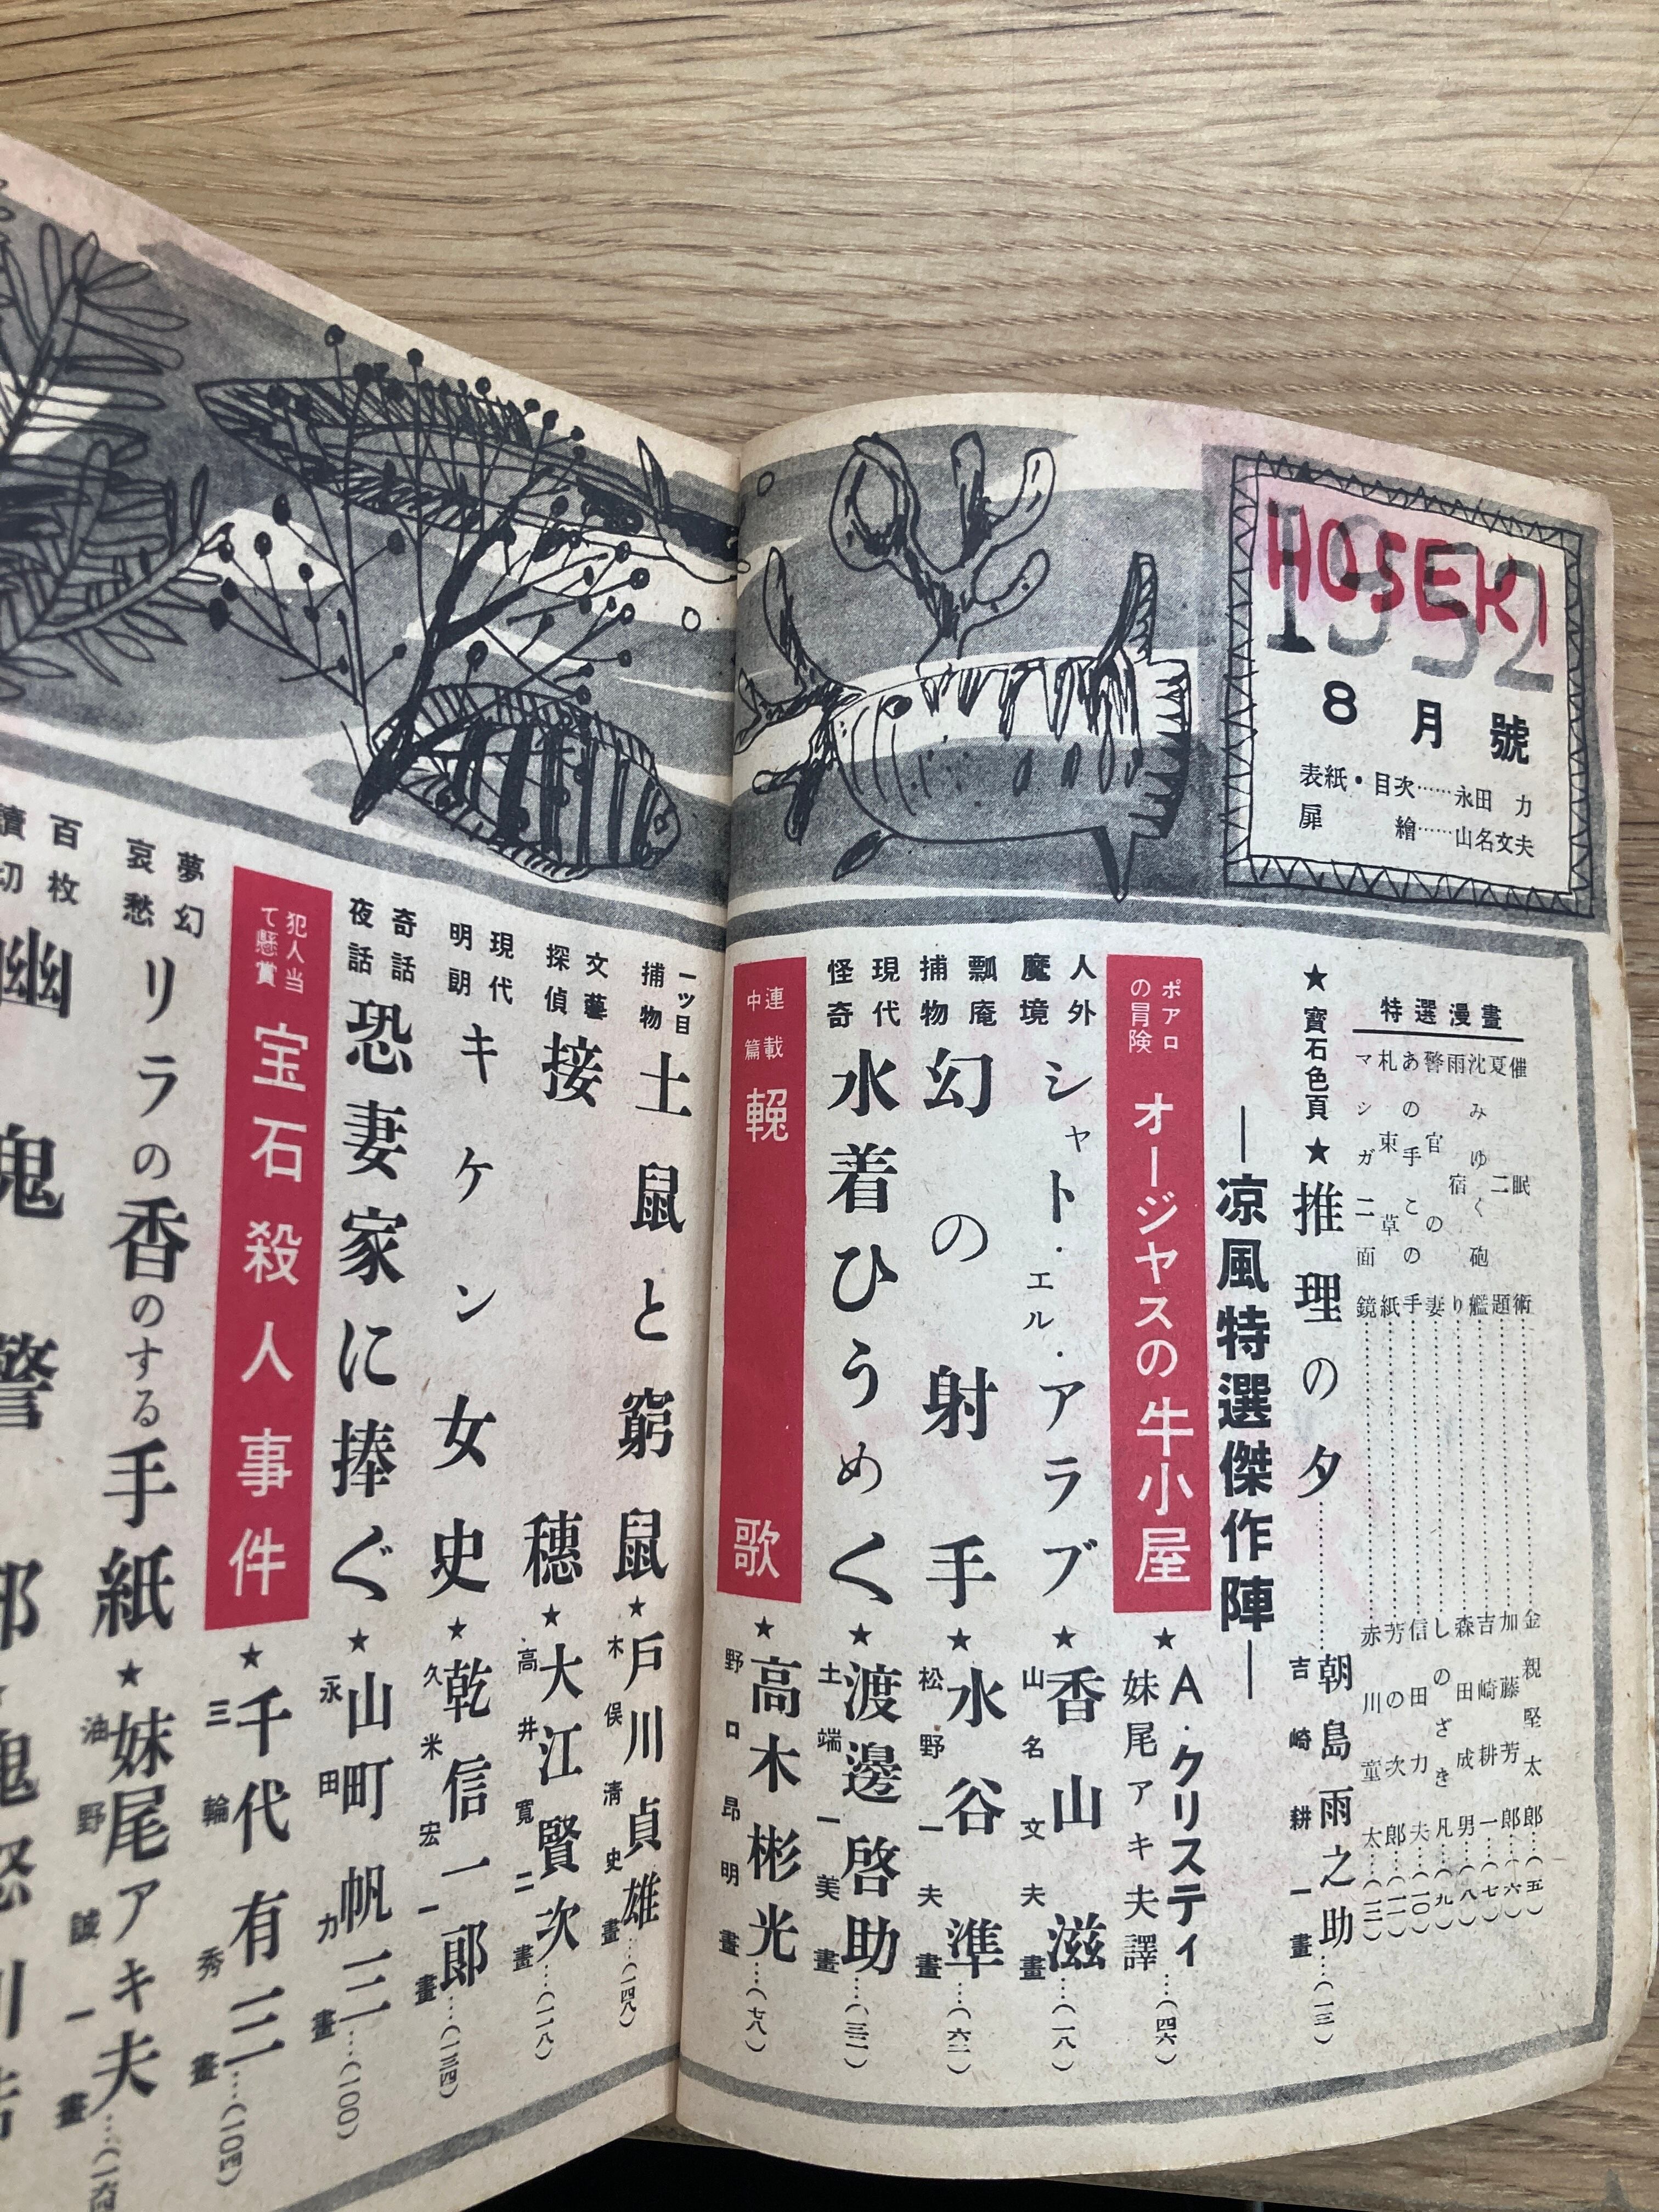 HOSEKI
1952
8月號
表紙・目次……永田 力
扉繪……山名文夫
特選漫畫
催眠術……金親堅太郎…(五)
夏二題……加藤芳郎…(六)
沈みゆく砲艦……吉崎耕一…(七)
雨宿り……森田成男…(八)
警官の妻……しのざき凡…(九)
あの手この手……信田力夫…(一〇)
札束草紙……芳の次郎…(一一)
マシガ二面鏡……赤川童太…(一二)
★寶石色頁★
推理の夕……朝島雨之助…(一三)
吉崎耕一畫
―凉風特選傑作陣―
ポアロの冒険
オージヤスの牛小屋★A・クリスティ
妹尾アキ夫譯…(四六)
人外魔境
シャト・エル・アラブ★香山滋…(一八)
山名文夫畫
瓢庵捕物
幻の射手★水谷準…(六二)
松野一夫畫
現代怪奇
水着ひうめく★渡邊啓助…(三二)
土端一美畫
連載中篇
輓歌★高木彬光…(七八)
野口昂明畫
一ッ目捕物
土鼠と窮鼠★戸川貞雄…(一四八)
木俣淸史畫
文藝探偵
接穗★大江賢次…(一一八)
高井寬二畫
現代明朗
キケン女史★乾信一郎…(一三四)
久米宏一畫
奇話夜話
恐妻家に捧ぐ★山町帆三…(一〇〇)
永田力畫
犯人当て懸賞
宝石殺人事件★千代有三…(一〇四)
三輪秀畫
夢幻哀愁
リラの香のする手紙★妹尾アキ夫
油野誠一畫
百枚讀切
幽鬼警部★